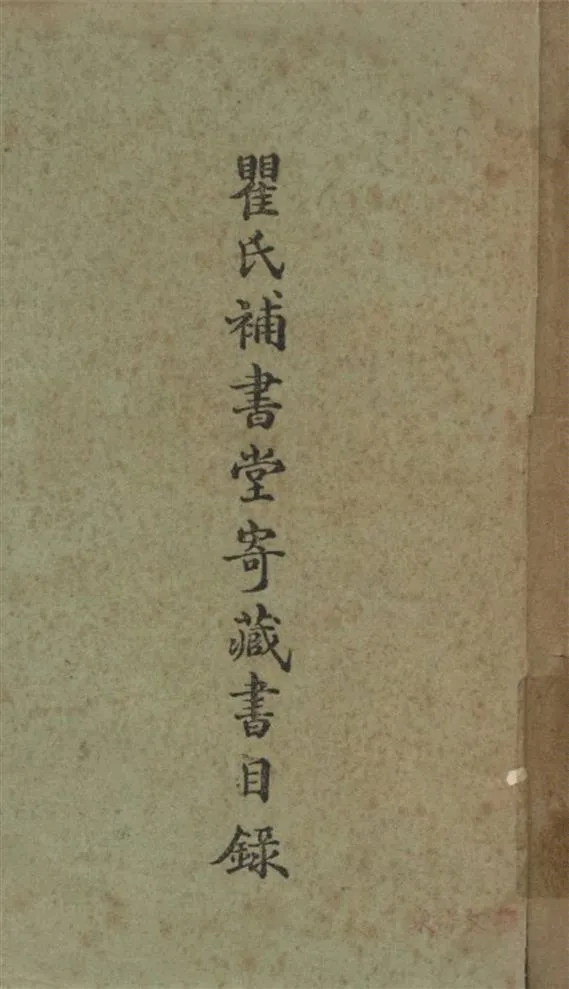 瞿氏補書堂寄藏書目錄